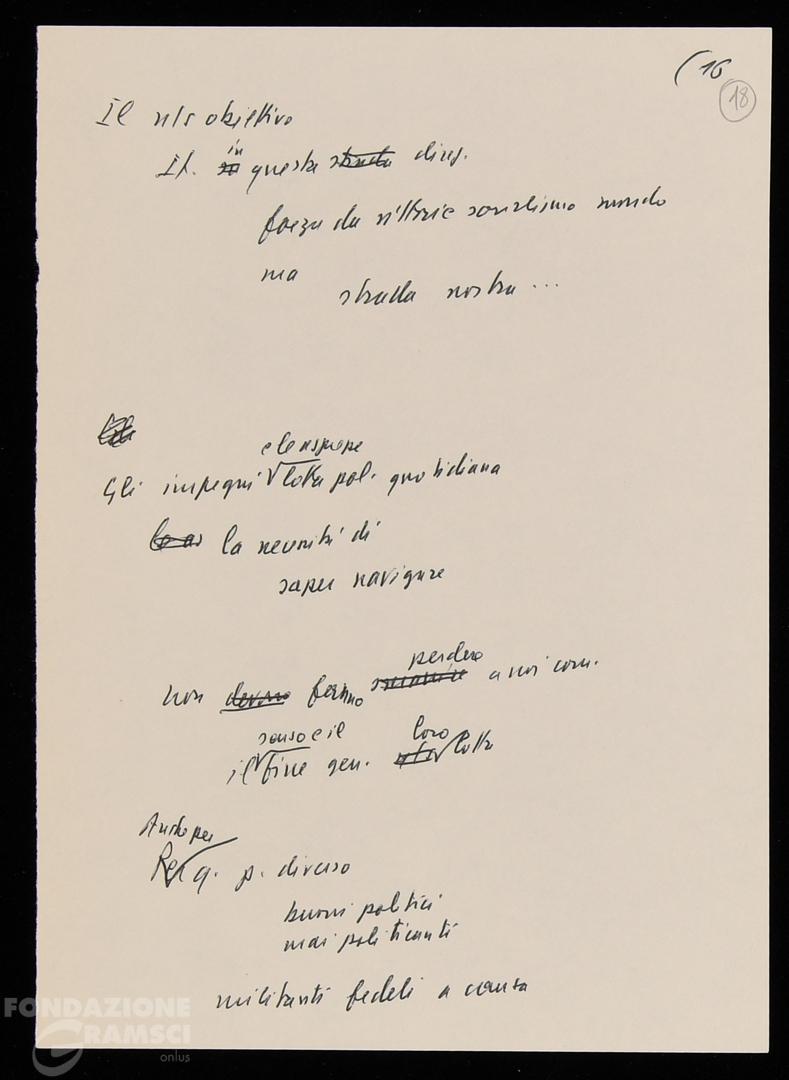 (16
18
Il ns obiettivo
It. in questa strada direz.
forza da vittorie socialismo mondo
ma
strada nostra ...
e le asprezze
Gli impegni lotta pol. quotidiana
la necessità di
saper navigare
perdere
non devono fermo a noi com.
senso e il
loro
il fine gen. lotta
Anche per
Per q. p. diverso
buoni politici
mai politicanti
militanti fedeli a causa
FONDAZIONE
GRAMSCI
onlus